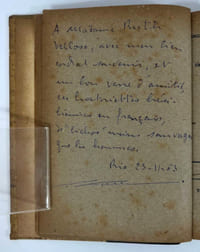 A Madame
Velloso, avec mon bien
cordial souvenir, et
un bon verre d'amitié,
en
en français,
moins sauvages
que les hommes.
Rio 23-11-63